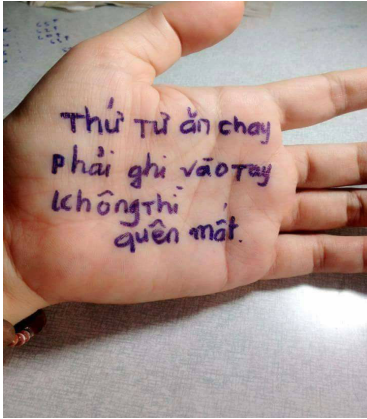 Thứ Tư ăn chay
Phải ghi vào Tay
Không Thì
quên mất.